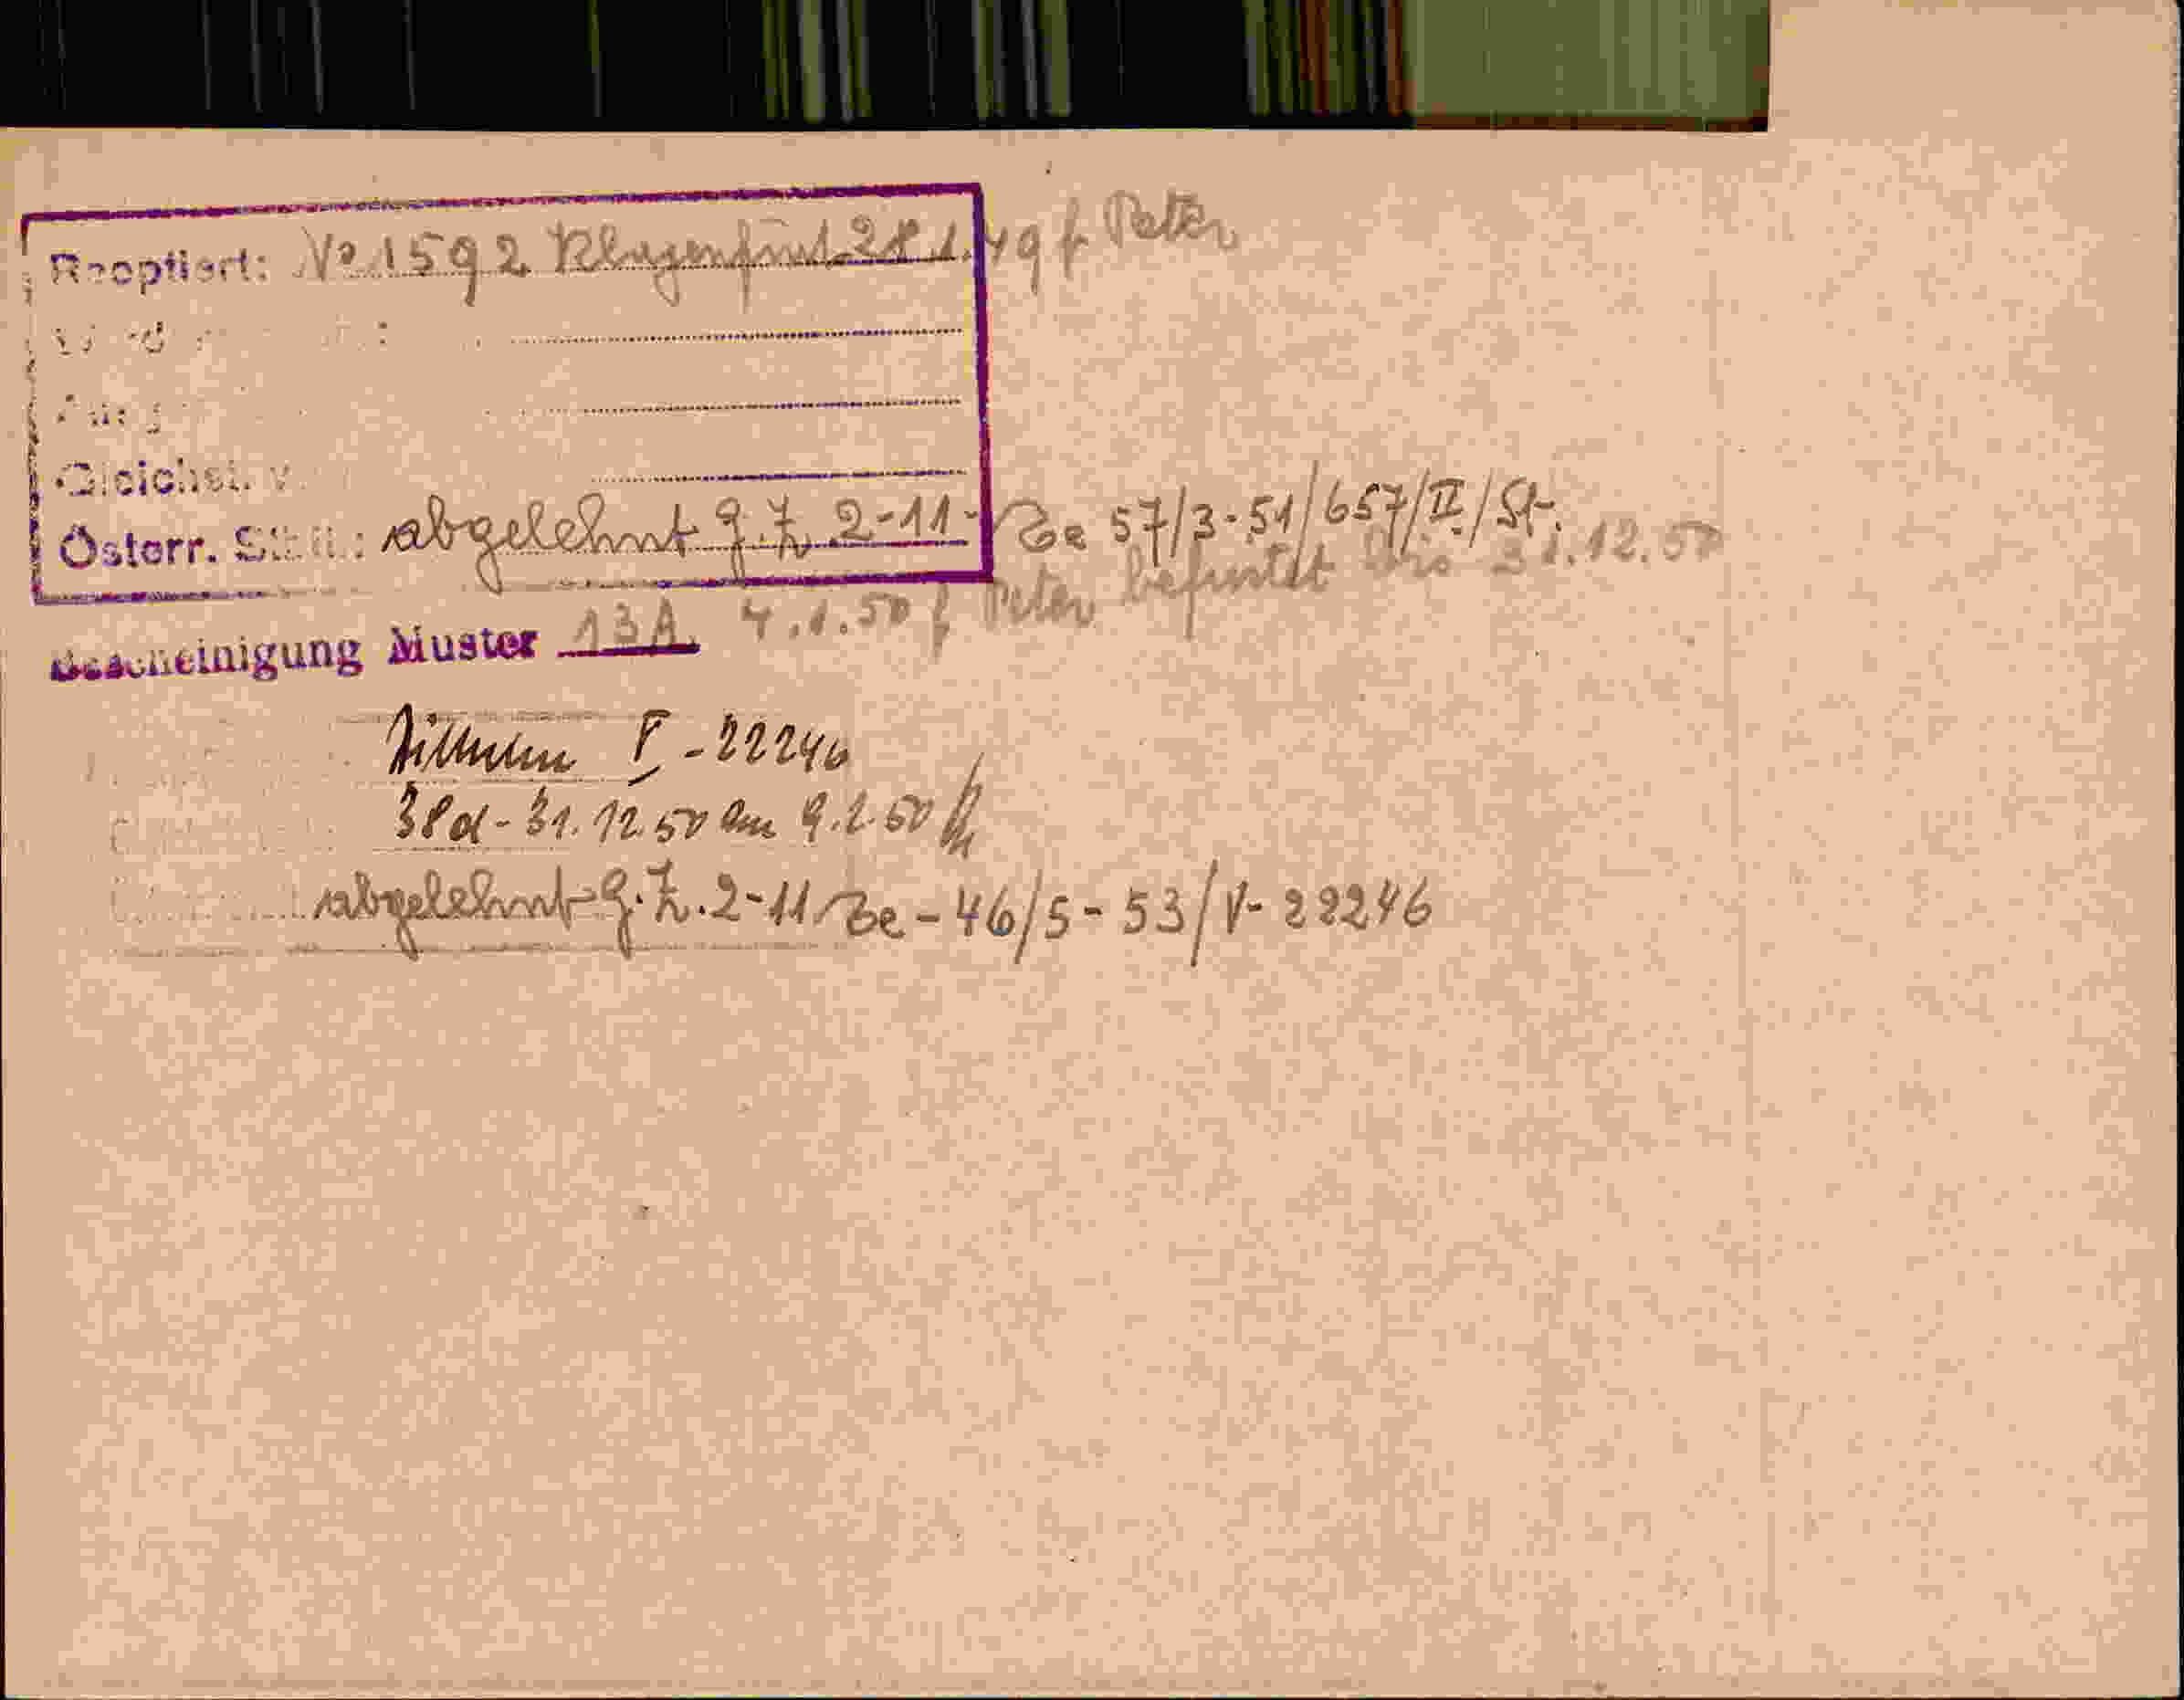 Reoptiert: No 1592 Klagenfurt 28.1.49 f. Peter
Gleichst. v.
Österr. Stb.: abgelehnt g. Z. 2-11- Be 57/3-51/657/II./St.
Bescheinigung Muster 13A. 4.1.50 f. Peter befristet bis 31.12.50
V-22246
38d - 31.12.50 am 9.2.50
abgelehnt g. Z. 2-11 Be - 46/5 - 53/V- 22246